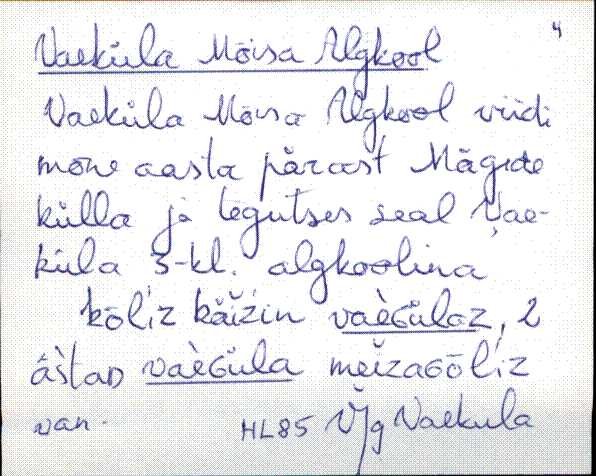 4
Vaeküla Mõisa Algkool
Vaeküla Mõisa Algkool viidi
mõne aasta pärast Mägede
külla ja tegutses seal Vae-
küla 3-kl. algkoolina
kōĺiz käìzin vaèGülaz, 2
āstaD vaèGüla meìzaGōĺiz
van.
HL85 VJg Vaeküla